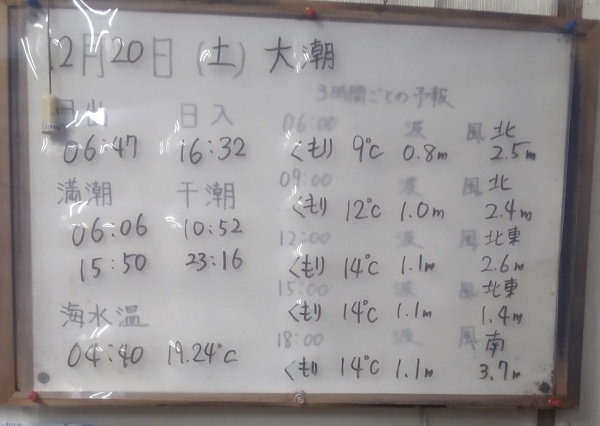 12月20日(土)大潮
日出 日入
06:47 16:32
満潮 干潮
06:06 10:52
15:50 23:16
海水温
04:40 19.24℃
3時間ごとの予報
06:00 波 風 北
くもり 9℃ 0.8m 2.5m
09:00 波 風 北
くもり 12℃ 1.0m 2.4m
12:00 波 風 北東
くもり 14℃ 1.1m 2.6m
15:00 波 風 北東
くもり 14℃ 1.1m 1.4m
18:00 波 風 南
くもり 14℃ 1.1m 3.7m